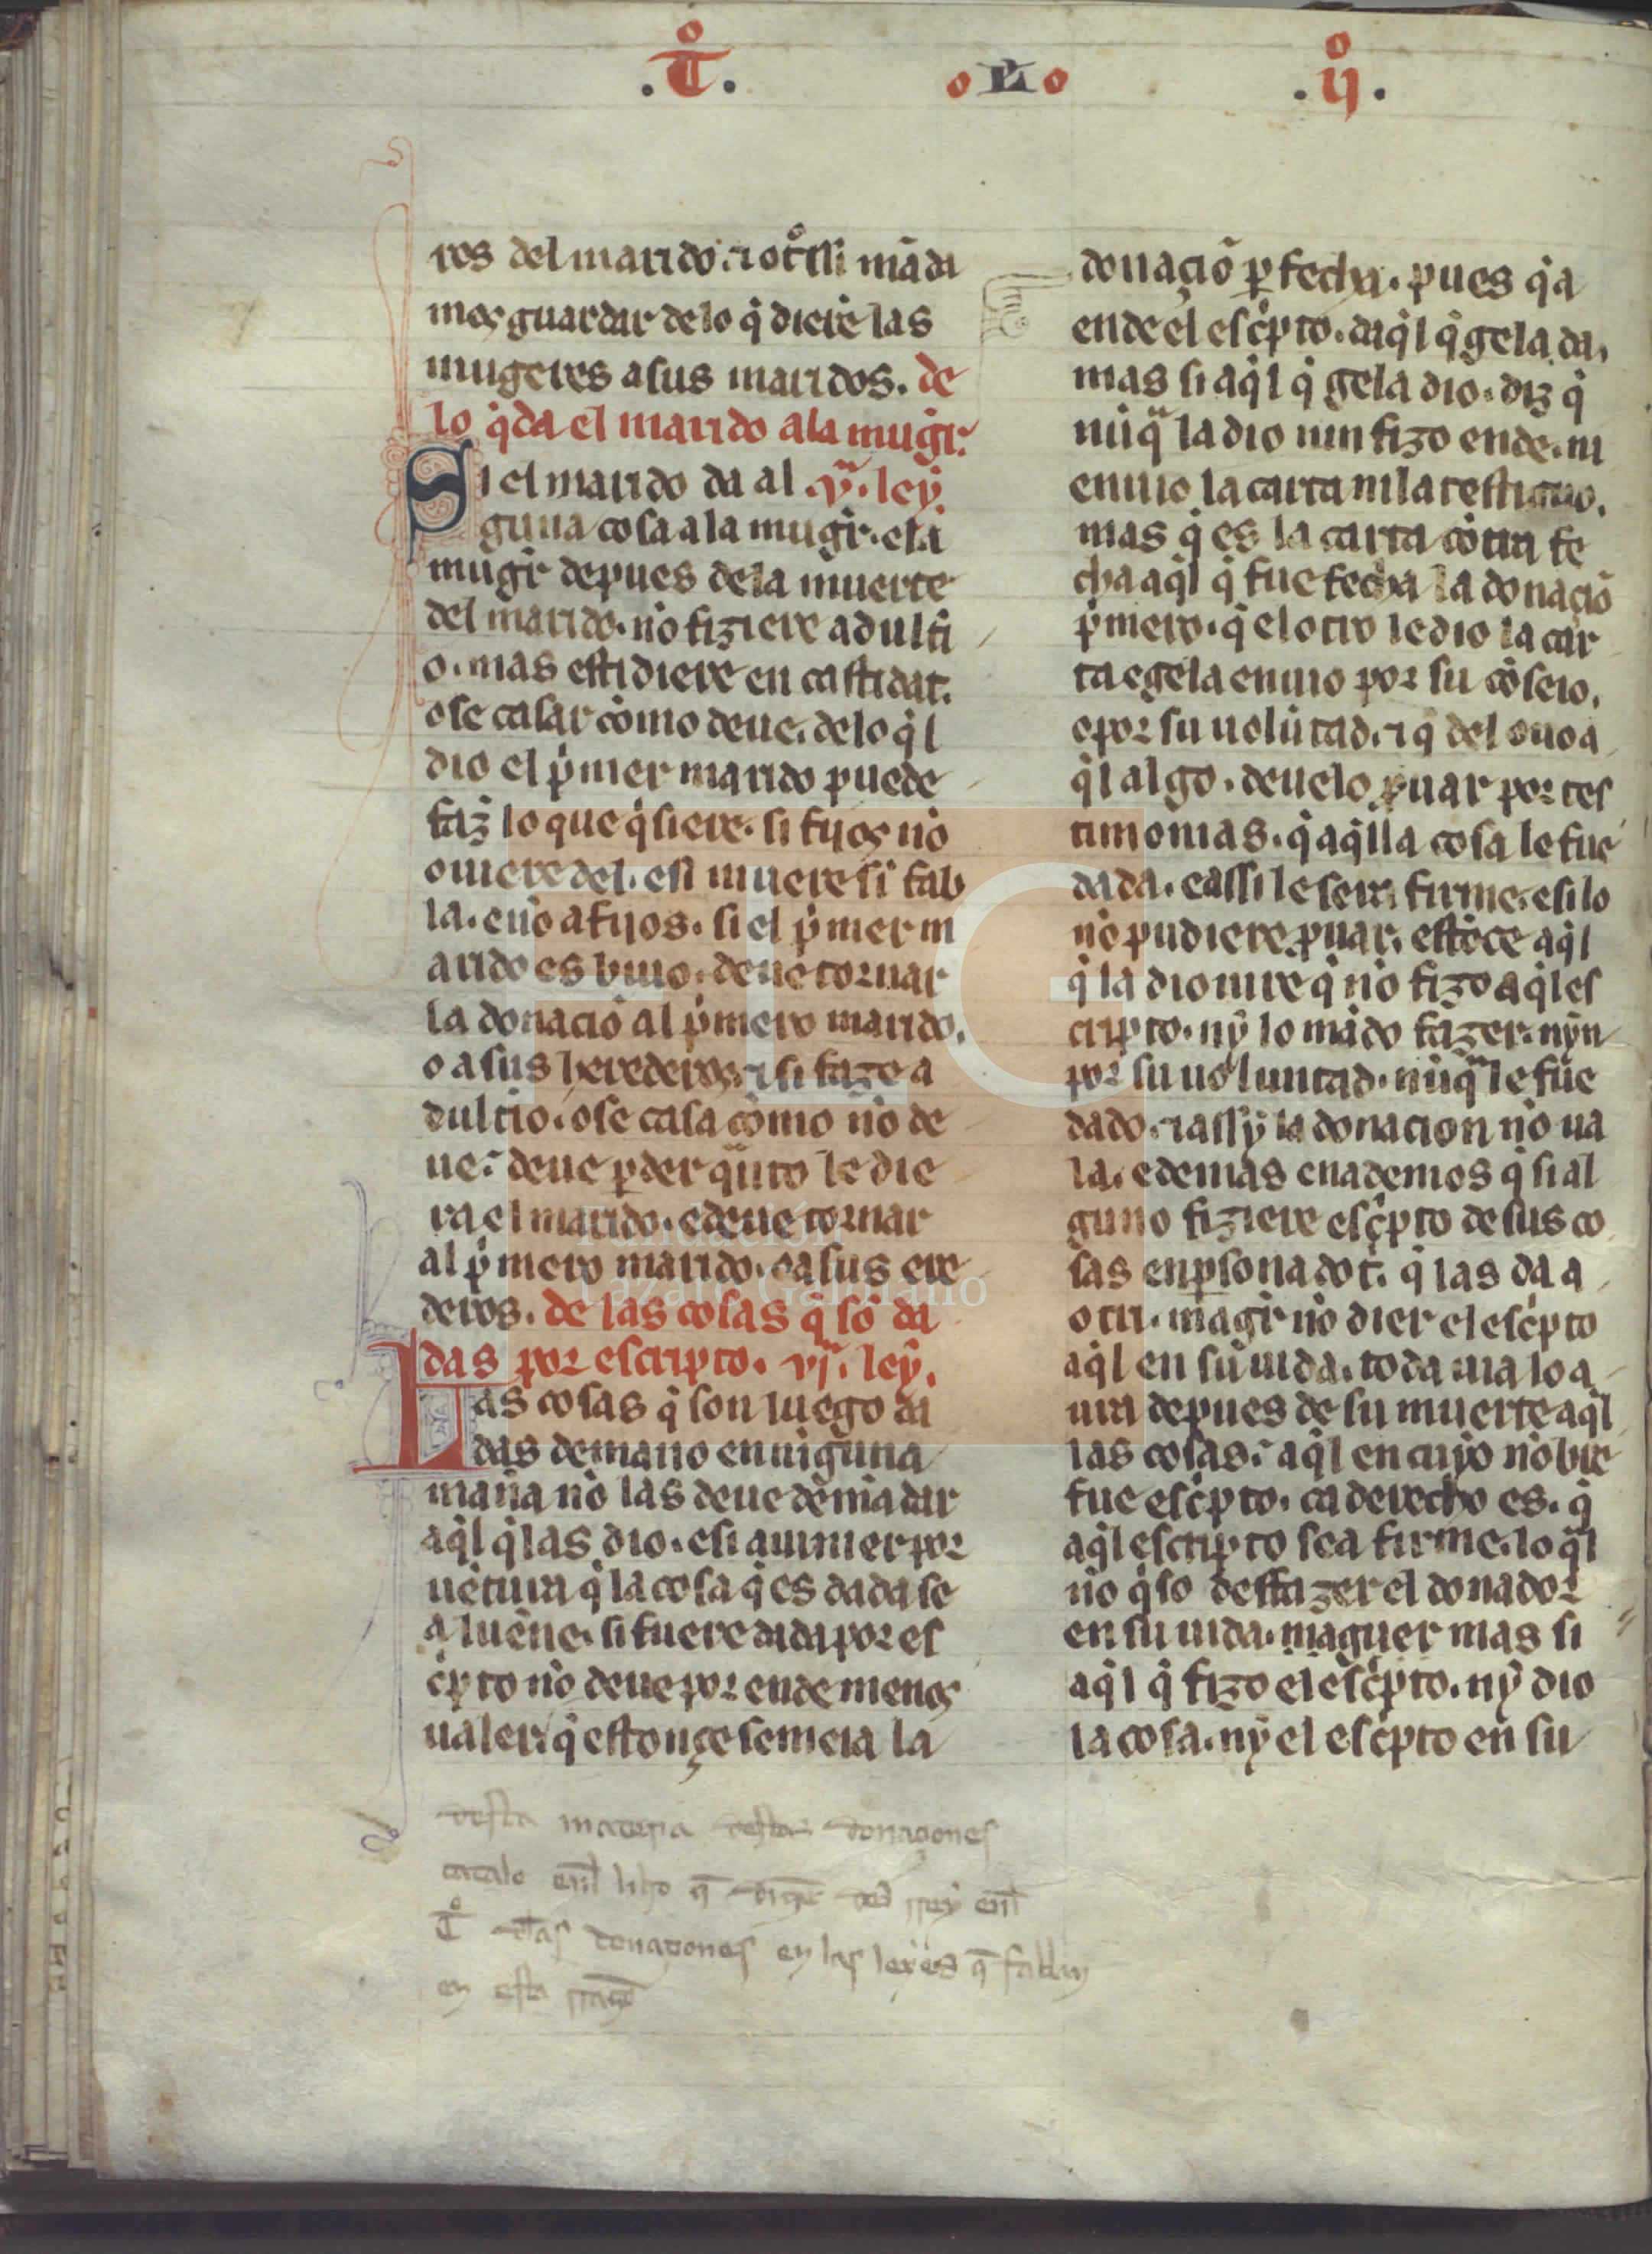 .T̊. oLo .ij̊.
ros del marido. ⁊ otͦssi mãda
mos guardar delo q̃ dierẽ las
mugeres asus maridos. de
lo q̃da el marido ala mugr̃.
Si el marido da al .vª. ley.
guna cosa a la mugr̃. e la
mugr̃ depues dela muerte
del marido. nõ fiziere adulti
o. mas estidiere en castidat.
o se casar cõmo deue. delo q̃l
dio el p̃mer marido puede
faz̃ lo que q̃siere. si fijos nõ
ouiere del. e si muere si͂ fab
la. e nõ a fijos. si el p̃mer m
arido es biuo. deue tornar
la donaciõ al p̃mero marido.
o a sus herederos. ⁊ si faze a
dultio. o se casa cõmo nõ de
ue. deue ꝑder qͣnto le die
ra el marido. e deue tornar
al p̃mero marido. e a sus ere
deros. de las cosas q̃ sõ da
das por escripto. vjª. ley.
Las cosas q̃ son luego da
das de mano en niguna
mañа nõ las deue demãdar
aq̃l q̃ las dio. e si auinier por
uẽtura q̃ la cosa q̃ es dada se
a luẽne. si fuere dada por es
c̃pto nõ deue por ende menos
ualer. q̃ estonçe semeia la
donaçiõ ꝑfecha. pues q̃ a
ende el esc̃pto. daq̃l q̃ gela da.
mas si aq̃l q̃ gela dio. diz q̃
nũqͣ la dio nin fizo ende. ni
enuio la carta ni la testiguo.
mas q̃ es la carta cõtra fe
cha aq̃l q̃ fue fecha la donaciõ
p̃mero. q̃ el otro le dio la car
ta e gela enuio por su cõseio.
e por su uolũtad. ⁊ q̃ del ouo a
q̃l algo. deuelo ꝓuar por tes
timonias. q̃ aq̃lla cosa le fue
dada. e assi le sera firme. e si lo
nõ pudiere ꝓuar. estõce aq̃l
q̃ la dio iure q̃ nõ fizo aq̃l es
cripto. nỹ lo mãdo fazer. nỹn
por su uoluntad. nũqͣ le fue
dado. ⁊ assỹ la donacion nõ ua
la. e demas enademos q̃ si al
guno fiziere esc̃pto de sus co
sas en ꝑsona dot̃. q̃ las da a
otri. magr̃ nõ dier el esc̃pto
aq̃l en su uida. toda uia lo a
ura depues de su muerte aq̃l
las cosas. aq̃l en cuyo nõbre
fue esc̃pto. ca derecho es. q̃
aq̃l escripto sea firme. lo q̃l
nõ q̃so desfazer el donador
en su uida. maguer mas si
aq̃l q̃ fizo el esc̃pto. nỹ dio
la cosa. nỹ el esc̃pto en su
desta materia destas donaçones
catalo enl̃ libro q̃ dizẽ del rey enl̃
T̊ dl̃as donaçones en las leyes q̃ fablan
en esta
Fundación
Lázaro Galdiano
FLG